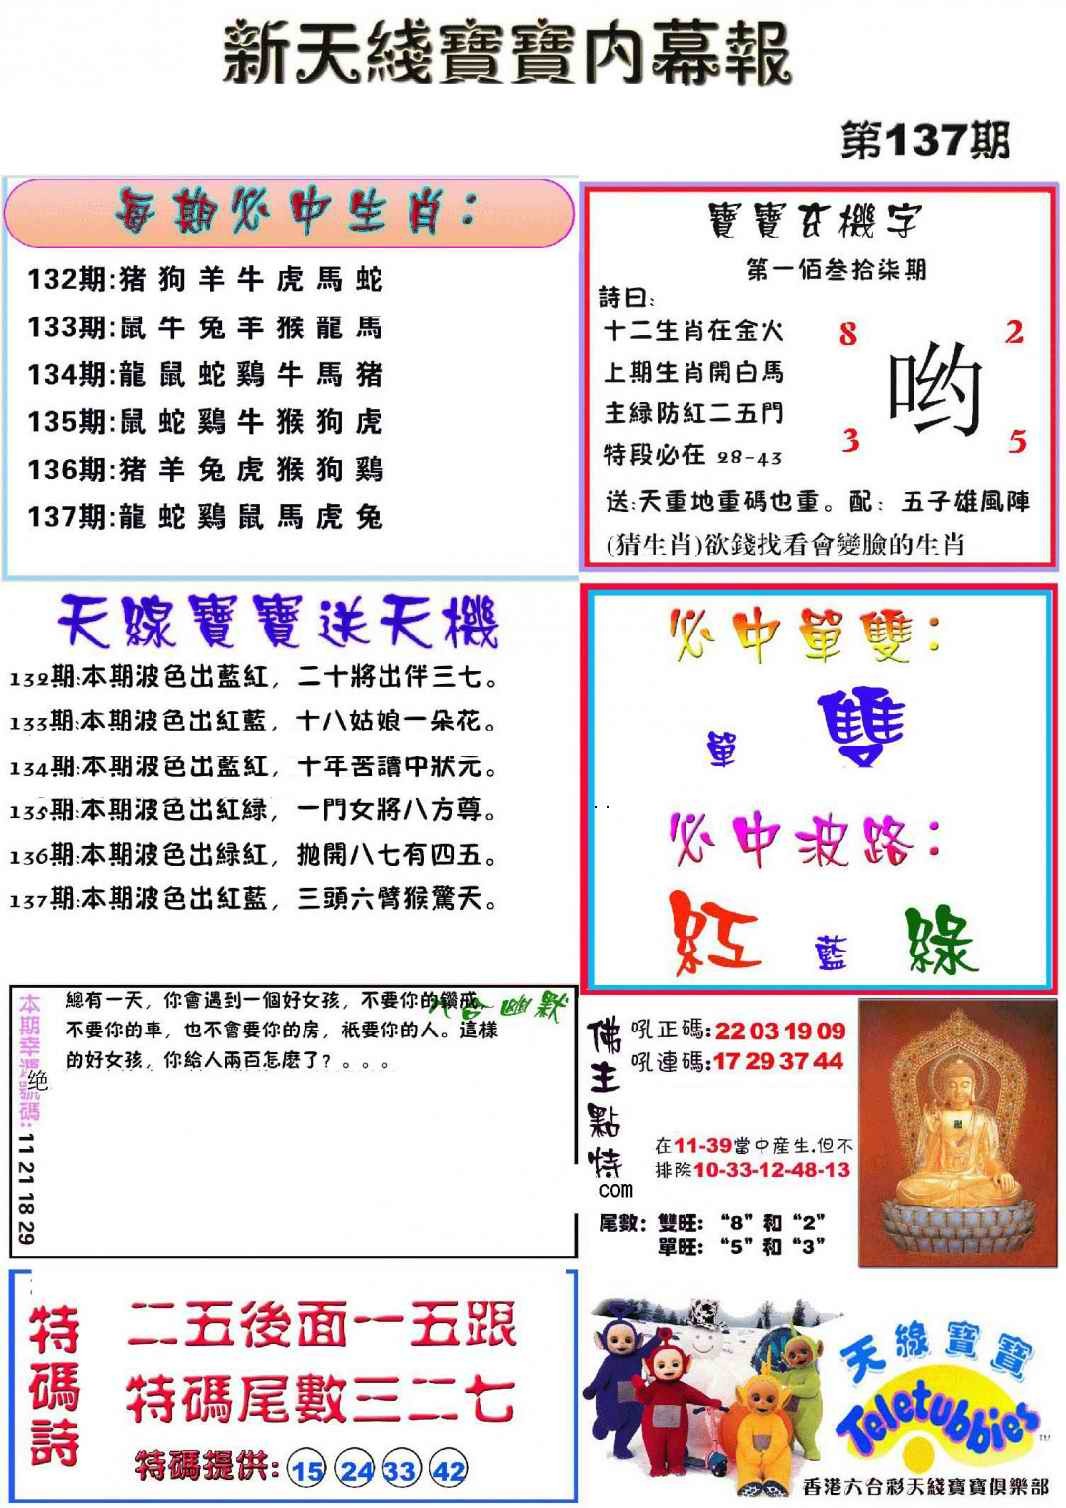 新天綫寶寶内幕報
第137期
每期必中生肖：
132期:猪狗羊牛虎馬蛇
133期:鼠牛兔羊猴龍馬
134期:龍鼠蛇鷄牛馬猪
135期:鼠蛇鷄牛猴狗虎
136期:猪羊兔虎猴狗鷄
137期:龍蛇鷄鼠馬虎兔
寶寶玄機字
第一佰叁拾柒期
詩曰:
十二生肖在金火
上期生肖開白馬
主緑防紅二五門
特段必在 28-43
8 2
哟
3 5
送:天重地重碼也重。配：五子雄風陣
(猜生肖)欲錢找看會變臉的生肖
天線寶寶送天機
132期:本期波色出藍紅，二十將出伴三七。
133期:本期波色出紅藍，十八姑娘一朵花。
134期:本期波色出藍紅，十年苦讀中狀元。
135期:本期波色出紅緑，一門女將八方尊。
136期:本期波色出緑紅，抛開八七有四五。
137期:本期波色出紅藍，三頭六臂猴驚天。
必中單雙：
單 雙
必中波路：
紅 藍 綠
本期幸運號碼:11 21 18 29
绝
六合幽默
總有一天，你會遇到一個好女孩，不要你的鑽戒，
不要你的車，也不會要你的房，祇要你的人。這樣
的好女孩，你給人兩百怎麽了？。。。
佛主點特
com
吼正碼:22 03 19 09
吼連碼:17 29 37 44
在11-39當中産生.但不
排除10-33-12-48-13
尾數：雙旺：“8”和“2”
單旺：“5”和“3”
特碼詩
二五後面一五跟
特碼尾數三二七
特碼提供: 15 24 33 42
天線寶寶
Teletubbies
TM
香港六合彩天綫寶寶俱樂部